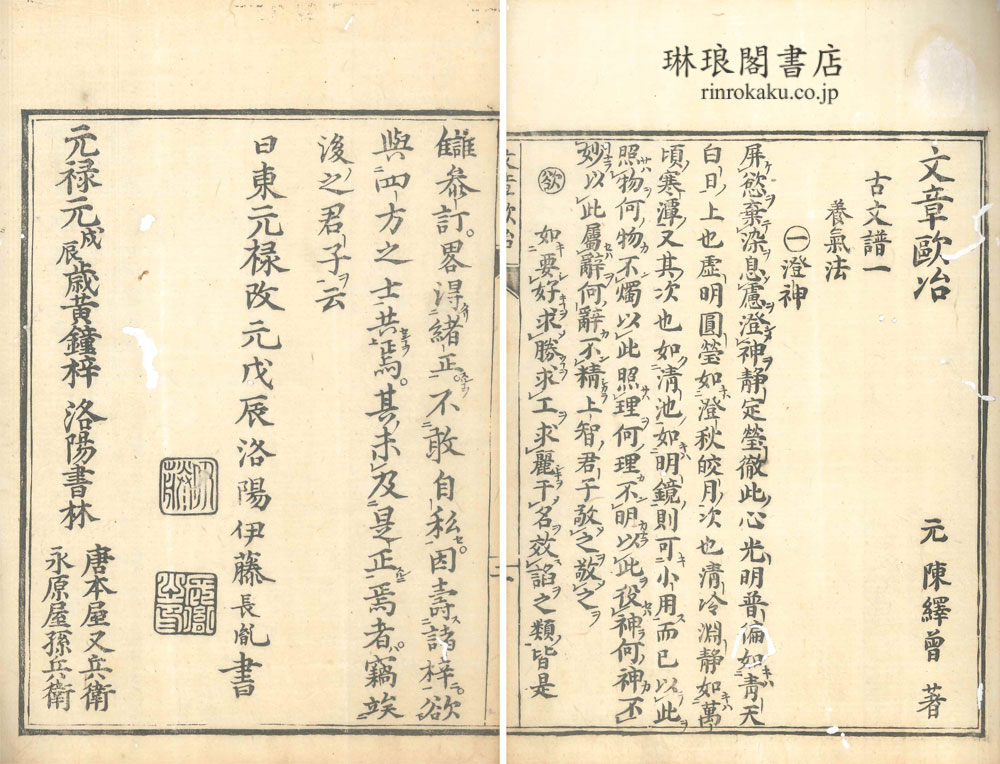 琳琅閣書店
rinrokaku.co.jp
文章歐冶
元 陳繹曾 著
古文譜一
養氣法
㊀澄神
屏慾棄染息慮澄神靜定瑩徹此心光明普徧如青天
白日上也虛明圓瑩如澄秋皎月次也清冷淵靜如萬
頃寒潭又其次也如清池如明鏡則可小用而已以此
照物何物不燭以此照理何理不明以此役神何神不
妙以此屬辭何辭不精上智君子敬之敬之
慾 如要好求勝求工求麗干名效諂之類皆是
讎參訂畧得緒正不敢自私因壽諸梓欲
與四方之士共焉其未及是正焉者竊竢
後之君子云
日東元祿改元戊辰洛陽伊藤長胤書
元禄元戊辰歲黃鐘梓 洛陽書林
唐本屋又兵衛
永原屋孫兵衛